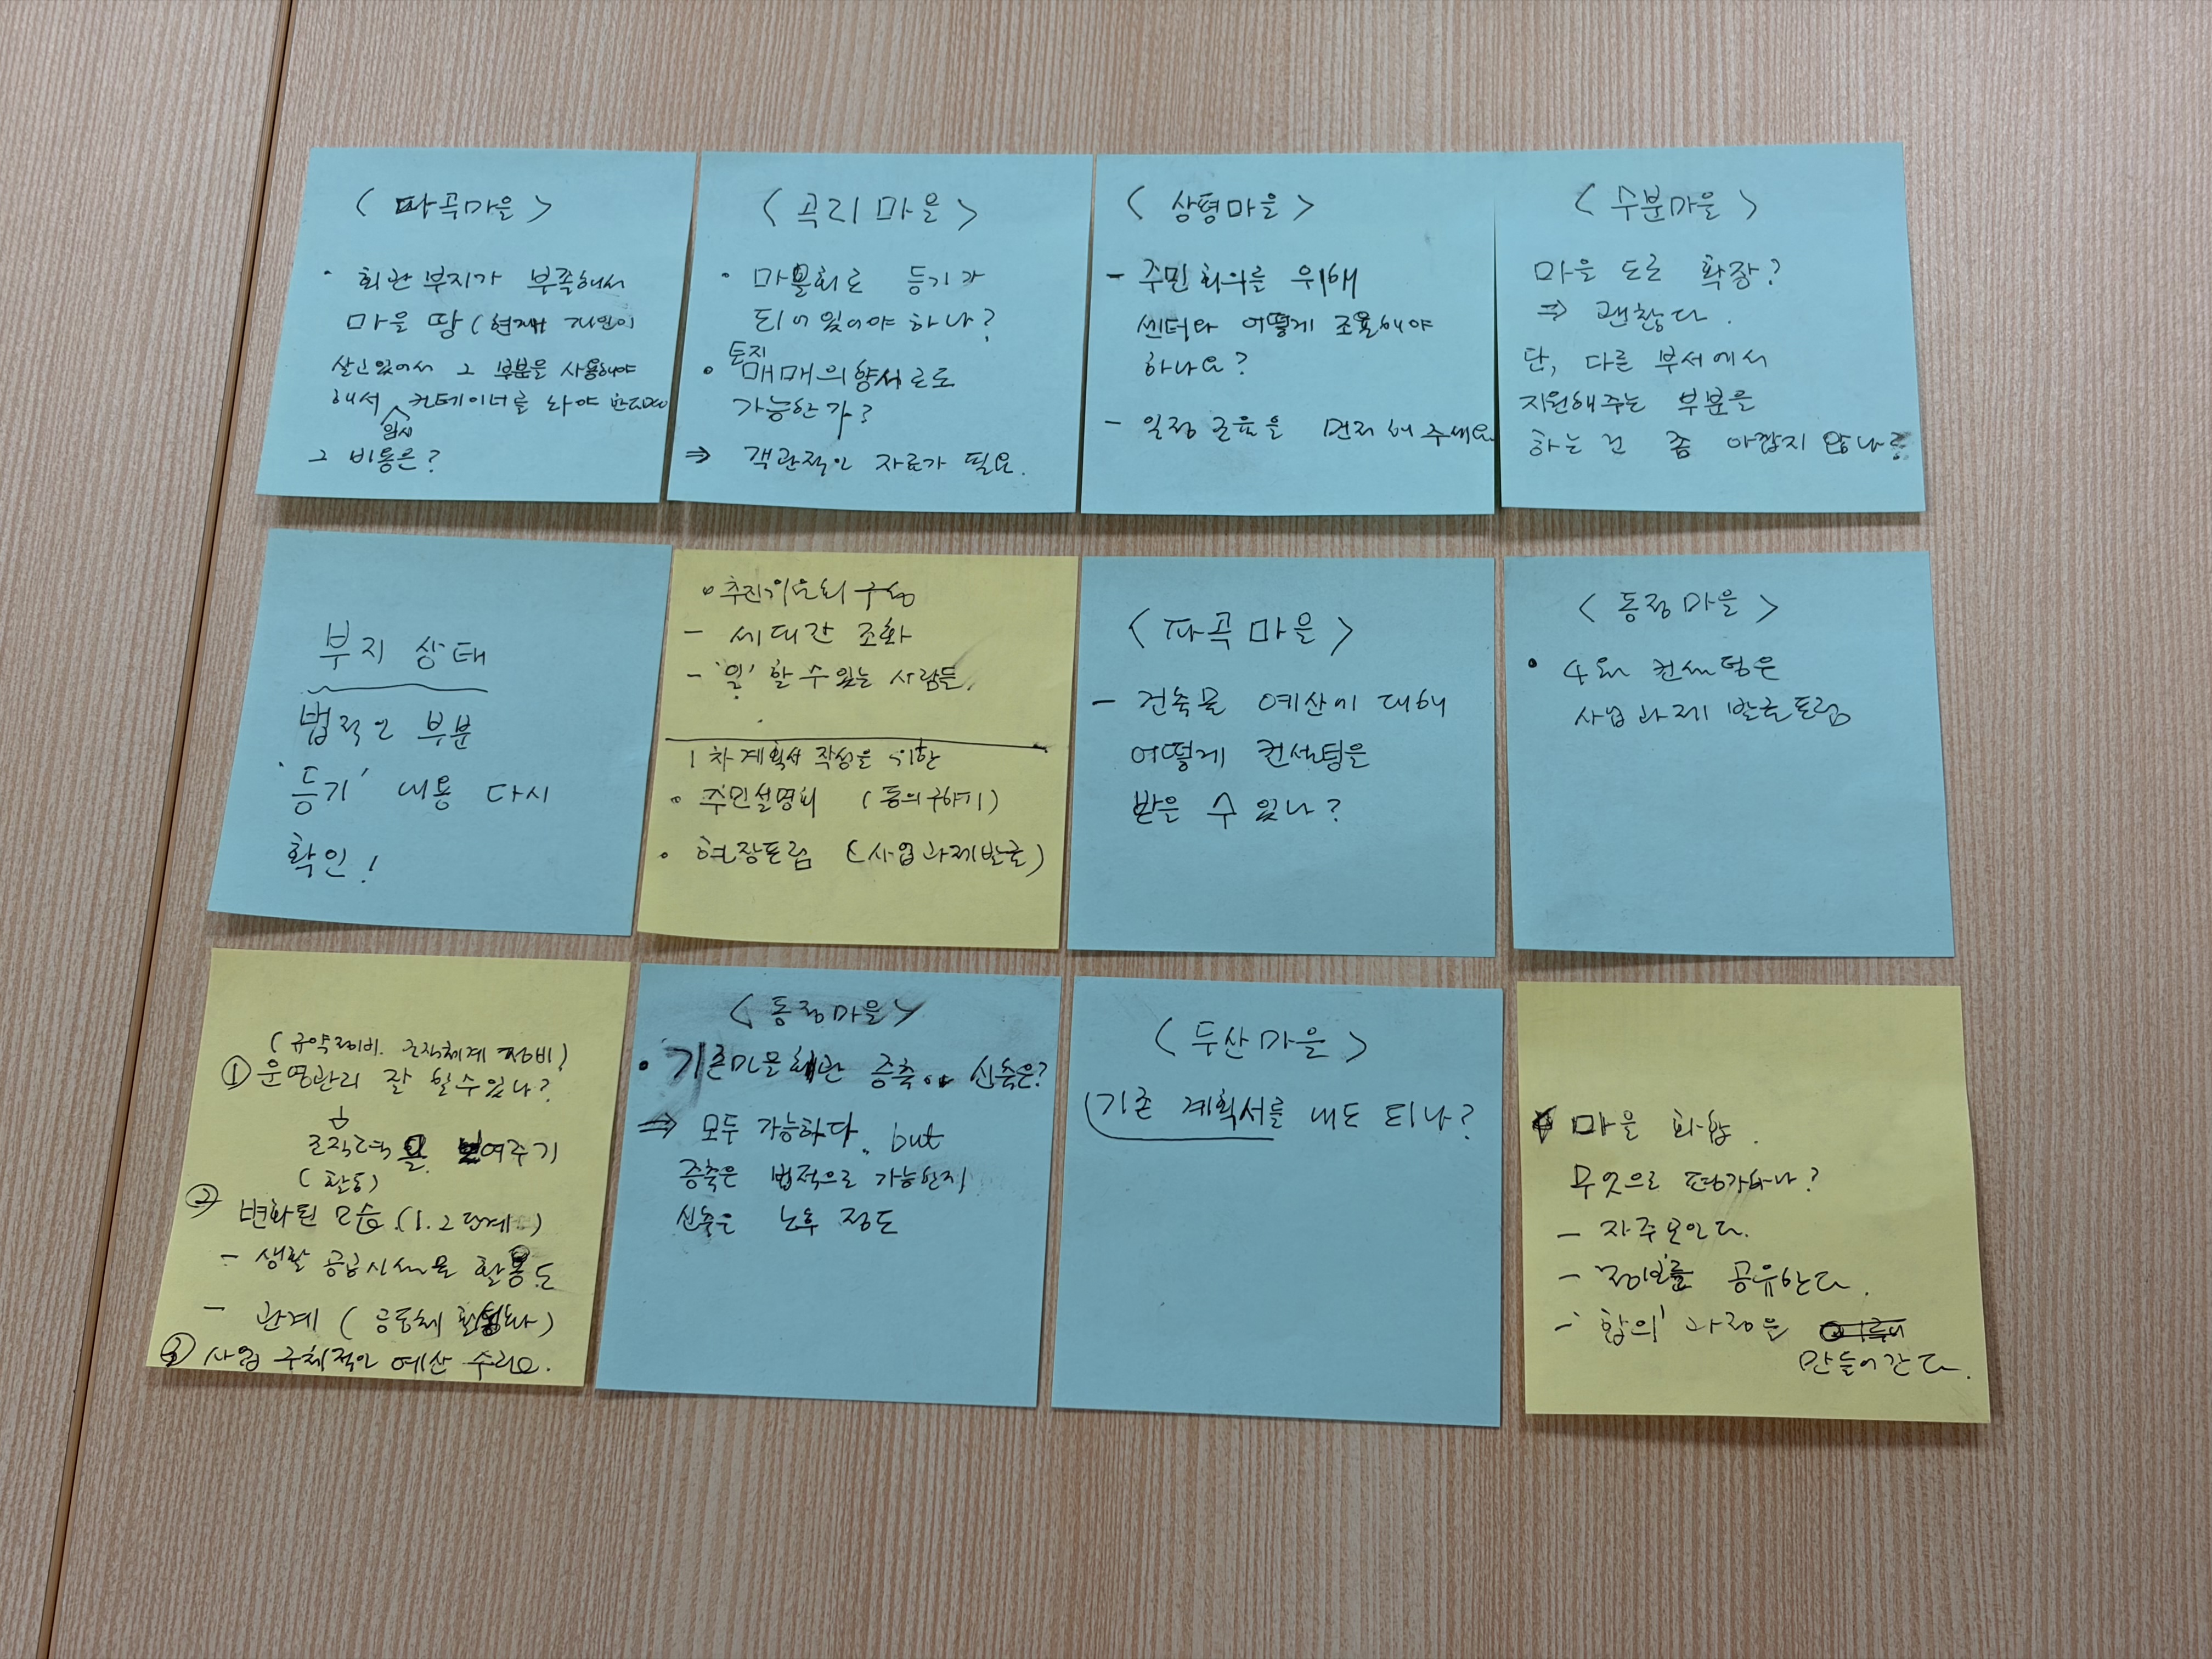 < 파곡마을 >
• 회관 부지가 부족해서
마을 땅 (현재 개인이
살고있어서 그 부분을 사용해야
해서 임시 컨테이너를 놔야
그 비용은?
< 곡리 마을 >
• 마을회로 등기가
되어 있어야 하나?
• 토지 매매의향서로도
가능한가?
⇒ 객관적인 자료가 필요.
< 상평마을 >
- 주민회의를 위해
센터와 어떻게 조율해야
하나요?
- 일정 조율을 먼저 해 주세요
< 수분마을 >
마을 도로 확장?
⇒ 괜찮다.
단, 다른 부서에서
지원해주는 부분을
하는 건 좀 아깝지 않나?
부지 상태
법적인 부분
'등기' 내용 다시
확인!
• 추진위원회 구성
- 세대간 조화
- '일' 할 수 있는 사람들.
1차 계획서 작성을 위한
• 주민설명회 (동의구하기)
• 현장포럼 (사업과제발굴)
< 파곡 마을 >
- 건축물 예산에 대해
어떻게 컨설팅을
받을 수 있나?
< 동정 마을 >
• 4월 컨설팅은
사업과제 발굴포럼
(규약정비. 조직체계 정비)
① 운영관리 잘 할수있나?
조직력을 보여주기
(활동)
② 변화된 모습.(1.2단계.)
- 생활 공공시설물 활용도
- 관계 (공동체 활성화)
③ 사업 구체적인 예산 수립요.
< 동정마을 >
• 기존마을회관 증축or 신축은?
⇒ 모두 가능하다. but
증축은 법적으로 가능한지
신축은 노후 정도
< 두산 마을 >
기존 계획서를 내도 되나?
마을 화합.
무엇으로 평가하나?
- 자주모인다.
- '정보'를 공유한다.
- '합의' 과정은
만들어간다.